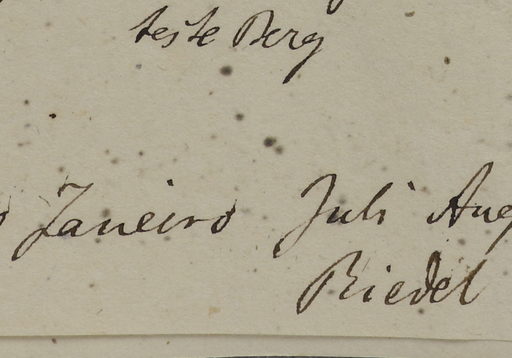 teste Berg
o Janeiro Juli Aug
Riedel